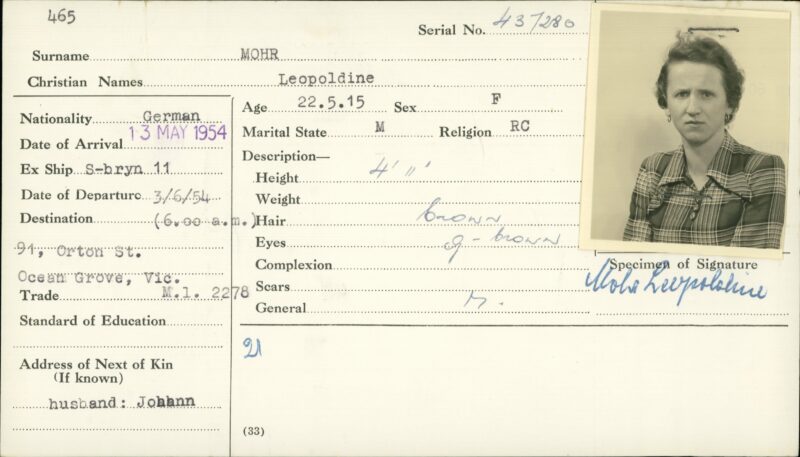 465
Serial No. 43/280
Surname MOHR
Christian Names Leopoldine
Nationality German
Date of Arrival 13 MAY 1954
Ex Ship S-bryn 11
Date of Departure 3/6/54
Destination (6.00 a.m.)
91, Orton St.
Ocean Grove, Vic.
Trade M.l. 2278
Standard of Education
Address of Next of Kin
(If known)
husband: Johann
Age 22.5.15 Sex F
Marital State M Religion RC
Description—
Height 4' 11"
Weight
Hair brown
Eyes g-brown
Complexion
Scars
General
Specimen of Signature
Mohr Leopoldine
21
(33)